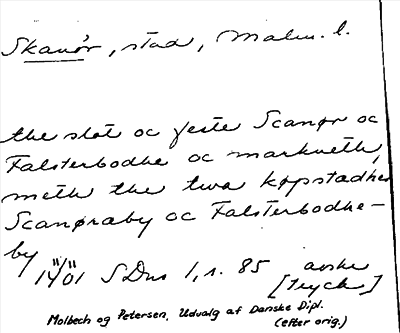 Skanör, stad, Malm. l.
the slot oc feste Scanør oc
Falsterbodhe oc markneth,
meth the twa køpstadhe
Scanøraby oc Falsterbodhe-
by
14 11/11 01 SDns 1, s. 85 avskr
[tryck]
Molbech og Petersen, Udvalg af Danske Dipl.
(efter orig.)